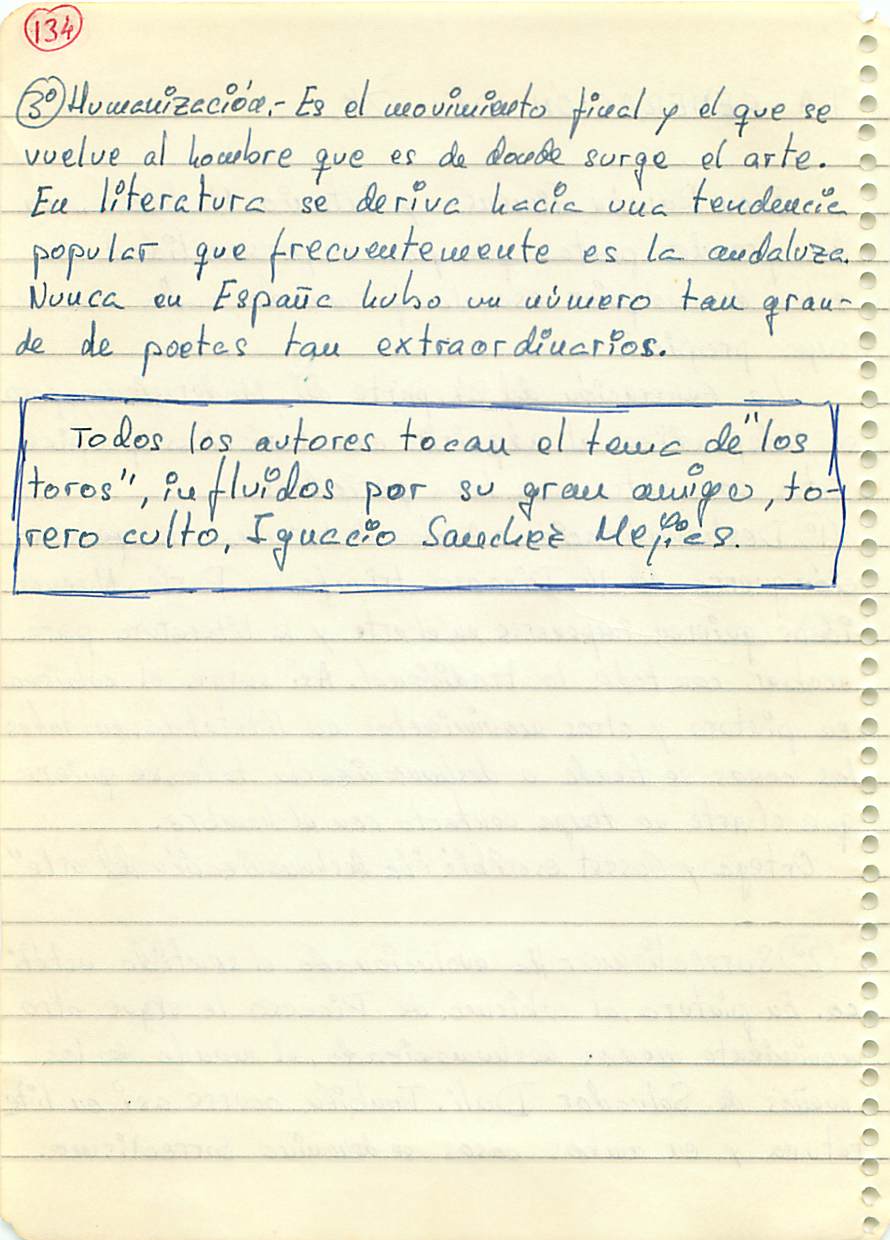 134
3º Humanización.- Es el movimiento final y el que se
vuelve al hombre que es de donde surge el arte.
En literatura se deriva hacia una tendencia
popular que frecuentemente es la andaluza.
Nunca en España hubo un número tan gran-
de de poetas tan extraordinarios.
Todos los autores tocan el tema de "los
toros", influidos por su gran amigo, to-
rero culto, Ignacio Sanchez Mejías.